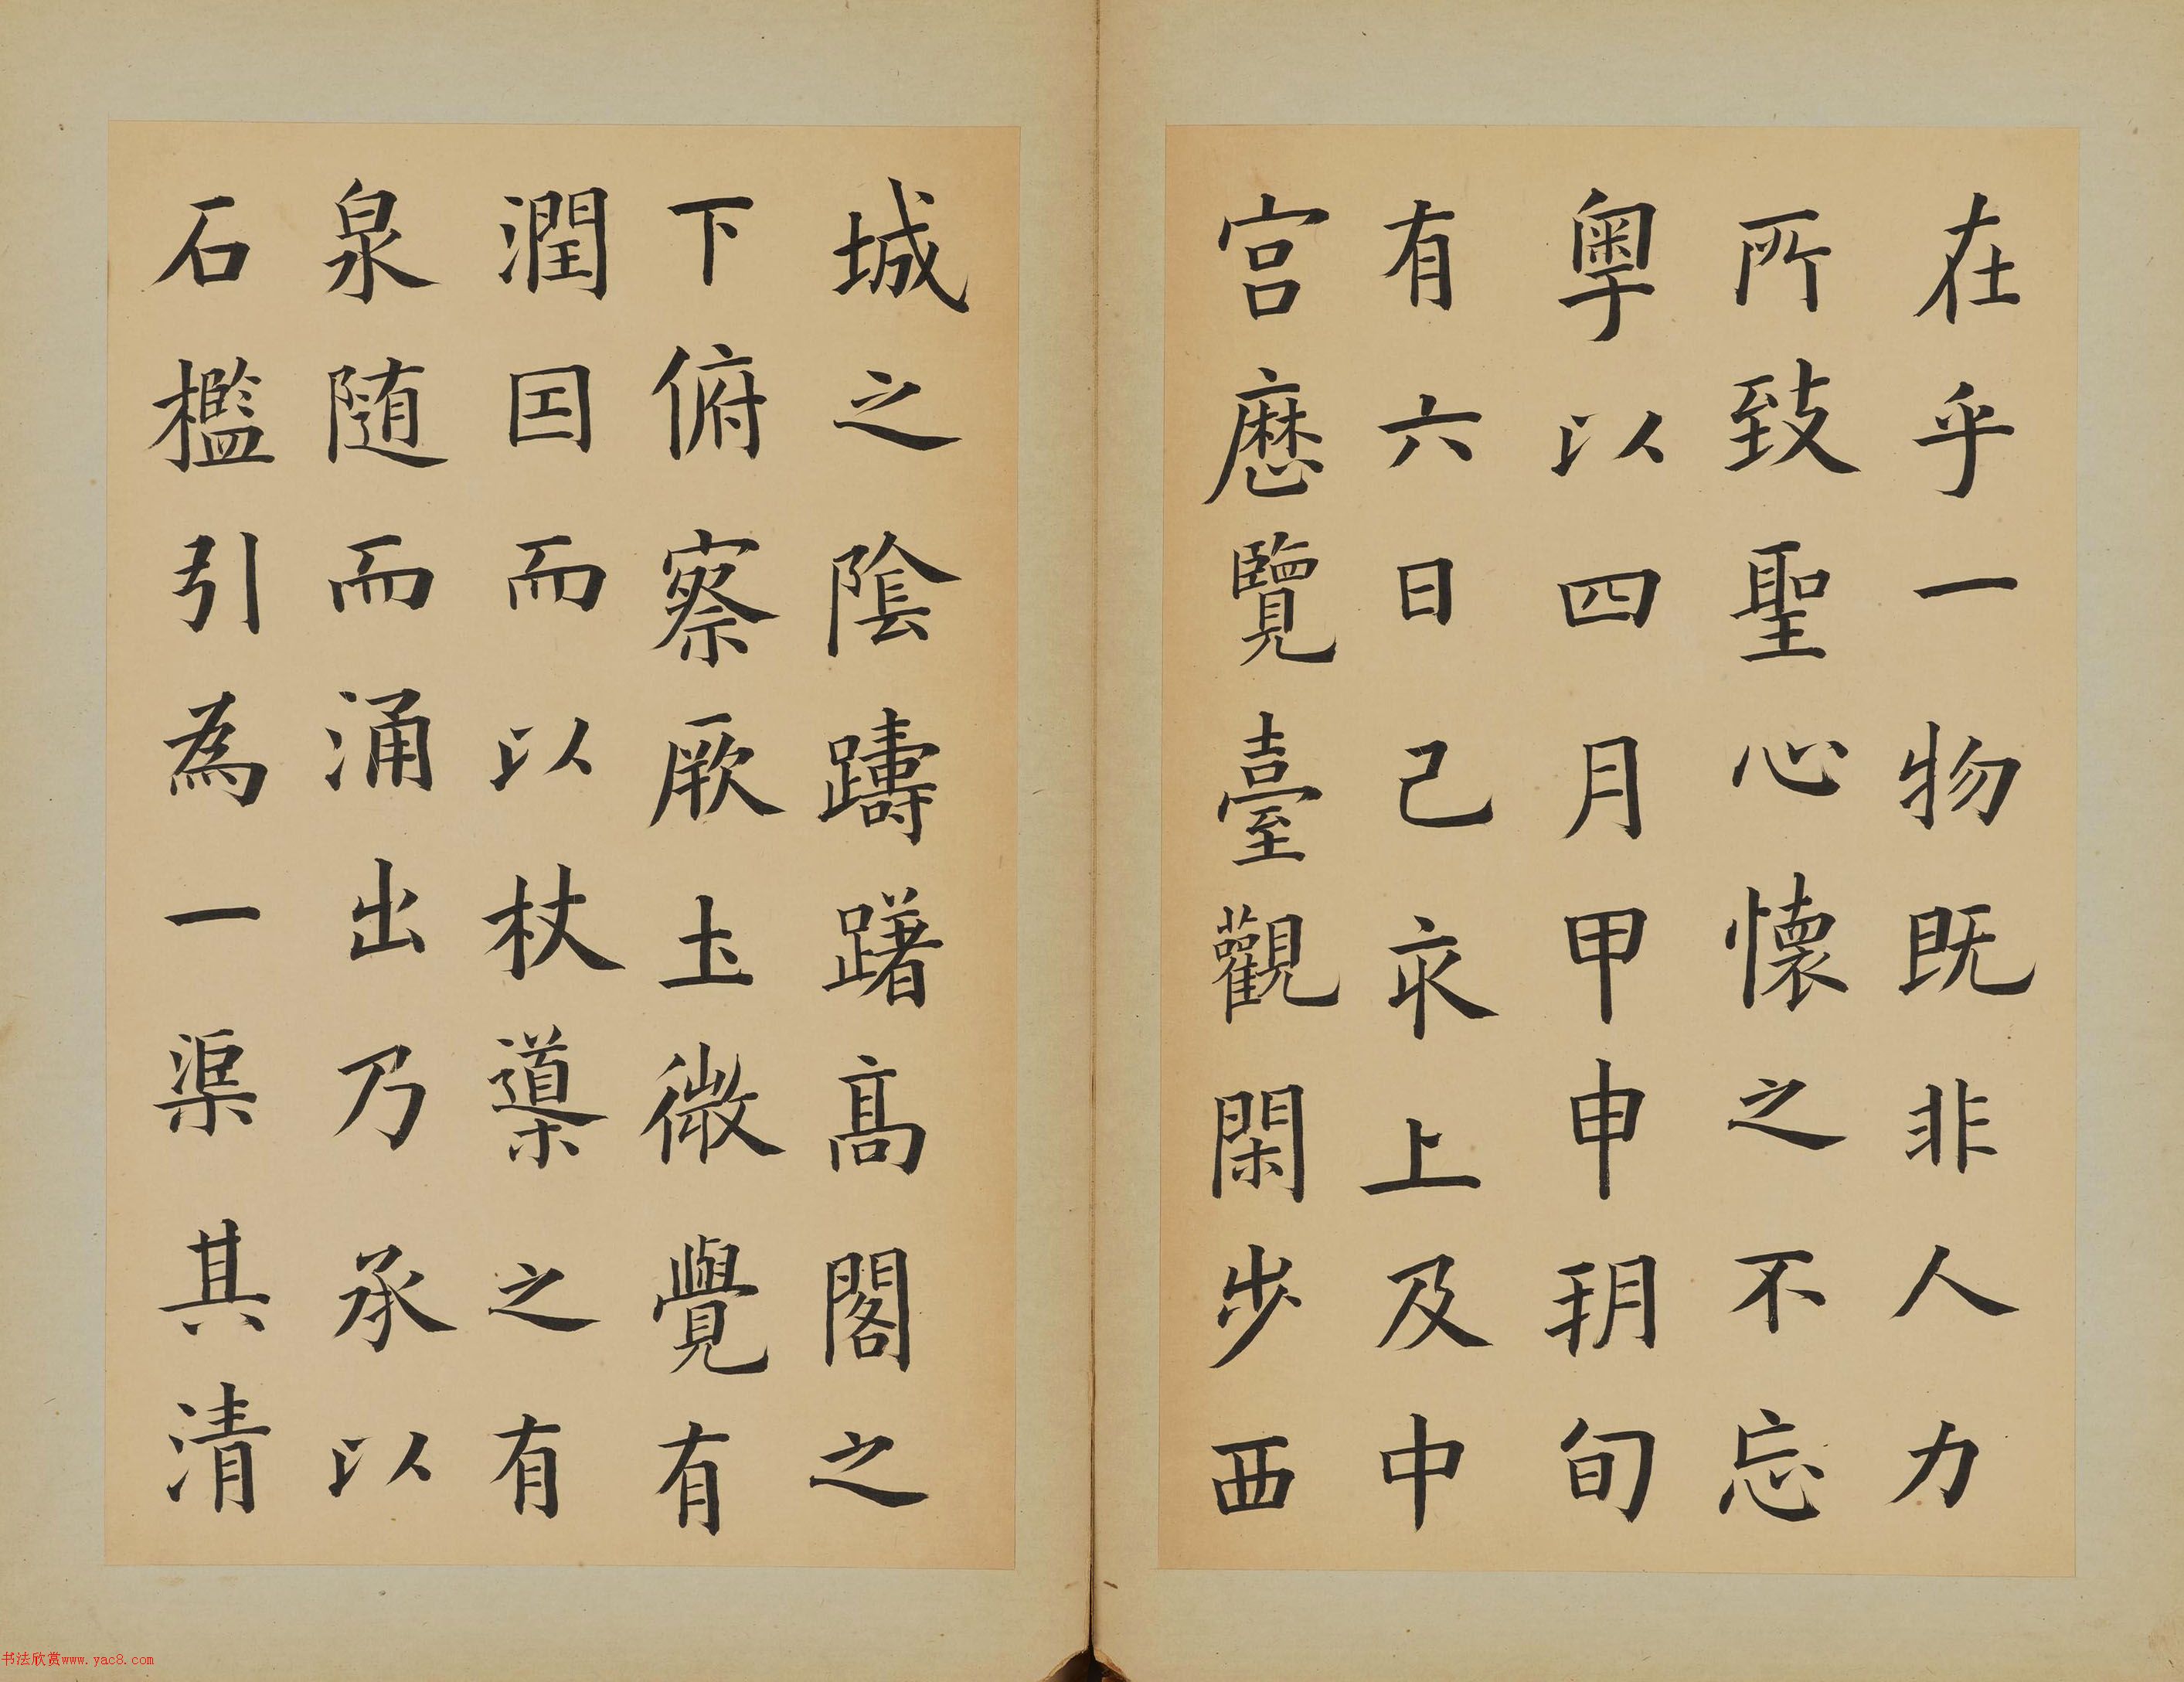 在乎一物既非人力
所致聖心懷之不忘
粵以四月甲申朔旬
有六日己亥上及中
宮歷覽臺觀閑步西
城之陰躊躇高閣之
下俯察厥土微覺有
潤因而以杖導之有
泉随而涌出乃承以
石檻引為一渠其清
书法欣赏www.yac8.com